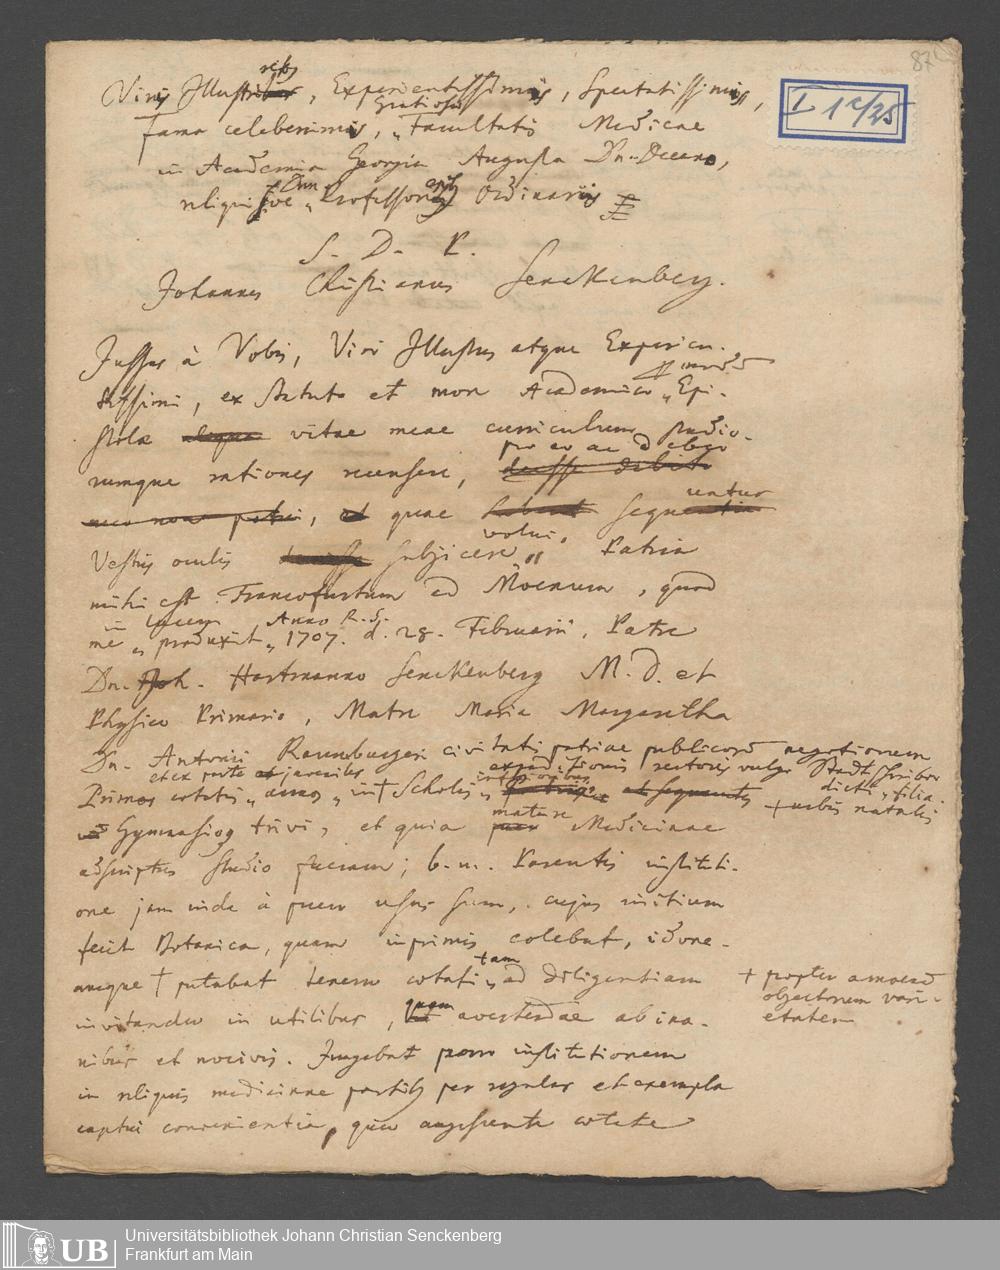 87
I 1c/25
Viris Illustribus, Experientissimis, Spectatissimis,
fama celeberrimis, gratiosae Facultatis Medicae
in Academia Georgia Augusta Dn. Decano,
reliquisque Dnn. Professoribus Ordinariis
S. D. P.
Johannes Christianus Senckenberg.
Jussus à Vobis, Viri Illustres atque Experien-
tissimi, ex statuto et more Academico, Epi-
stola vitae meae curriculum studio-
rumque rationes recensere, pro eo ac debeo
quae sequuntur
Vestris oculis subjicere volui. Patria
mihi est Francofurtum ad Moenum, quod
me in lucem produxit Anno R. S. 1707. d. 28. Februarii, Patre
Dn. Joh. Hartmanno Senckenberg M. D. et
Physico Primario, Matre Maria Margaretha
Dn. Antonii Raumburgeri civitatis patriae publicorum negotiorum
expeditionis rectoris vulgo Stadtschreiber
dicti, filia.
Primos aetatis et ex parte juveniles annos in Scholis inferioribus
+ urbis natalis
Gymnasioq trivi, et quia mature Medicinae
adscriptus studio fueram; b. m. Parentis instituti-
one jam inde à puero usus sum, cujus initium
fecit Botanica, quam inprimis colebat, idone-
amque + putabat tenero aetati tam ad diligentiam
+ propter amoenam
objectorum vari-
etatem
invitandae in utilibus, quam avertendae ab ina-
nibus et nocivis. Jungebat porro institutionem
in reliquis medicinae partib per regulas et exempla
captui convenientia, qui augescente aetate
Universitätsbibliothek Johann Christian Senckenberg
Frankfurt am Main
UB